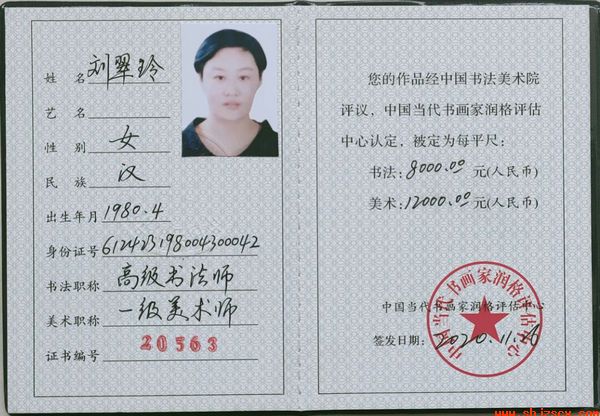 姓 名 刘翠玲
艺 名
性 别 女
民 族 汉
出生年月 1980.4
身份证号 612423198004300042
书法职称 高级书法师
美术职称 一级美术师
证书编号 20563
您的作品经中国书法美术院
评议，中国当代书画家润格评估
中心认定，被定为每平尺：
书法：8000.00 元(人民币)
美术：12000.00 元(人民币)
中国当代书画家润格评估中心
中国当代书画家润格评估中心
签发日期：2020.11.26
www.shjzscx.com